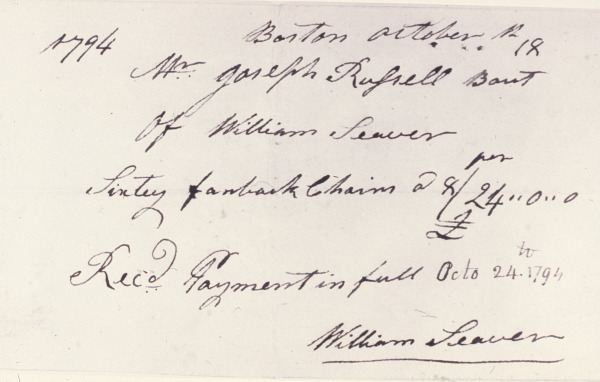 1794 Boston October th 18
Mr Joseph Russell Bout
Of William Seaver
Sixty fanback Chairs @ 8/ per £ 24"0"0
Rec'd Payment in full Octo 24to 1794
William Seaver